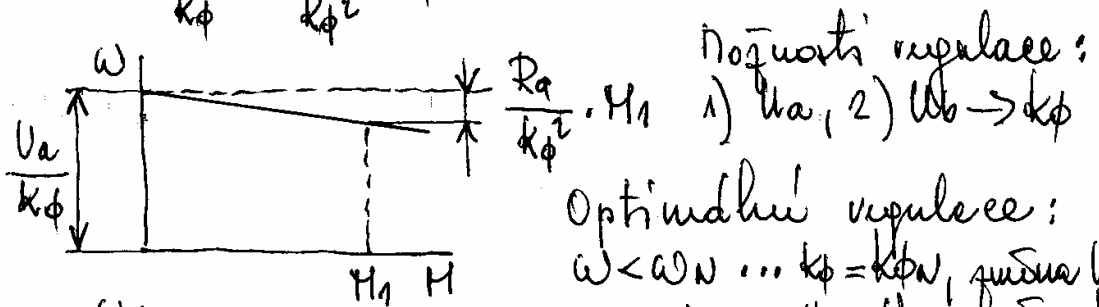 kϕ kϕ²
ω
Ua
kϕ
Ra
kϕ² · M1
M1 M
Možnosti regulace:
1) Ua, 2) Ub → kϕ
Optimální regulace:
ω < ωN ... kϕ = kϕN, změna